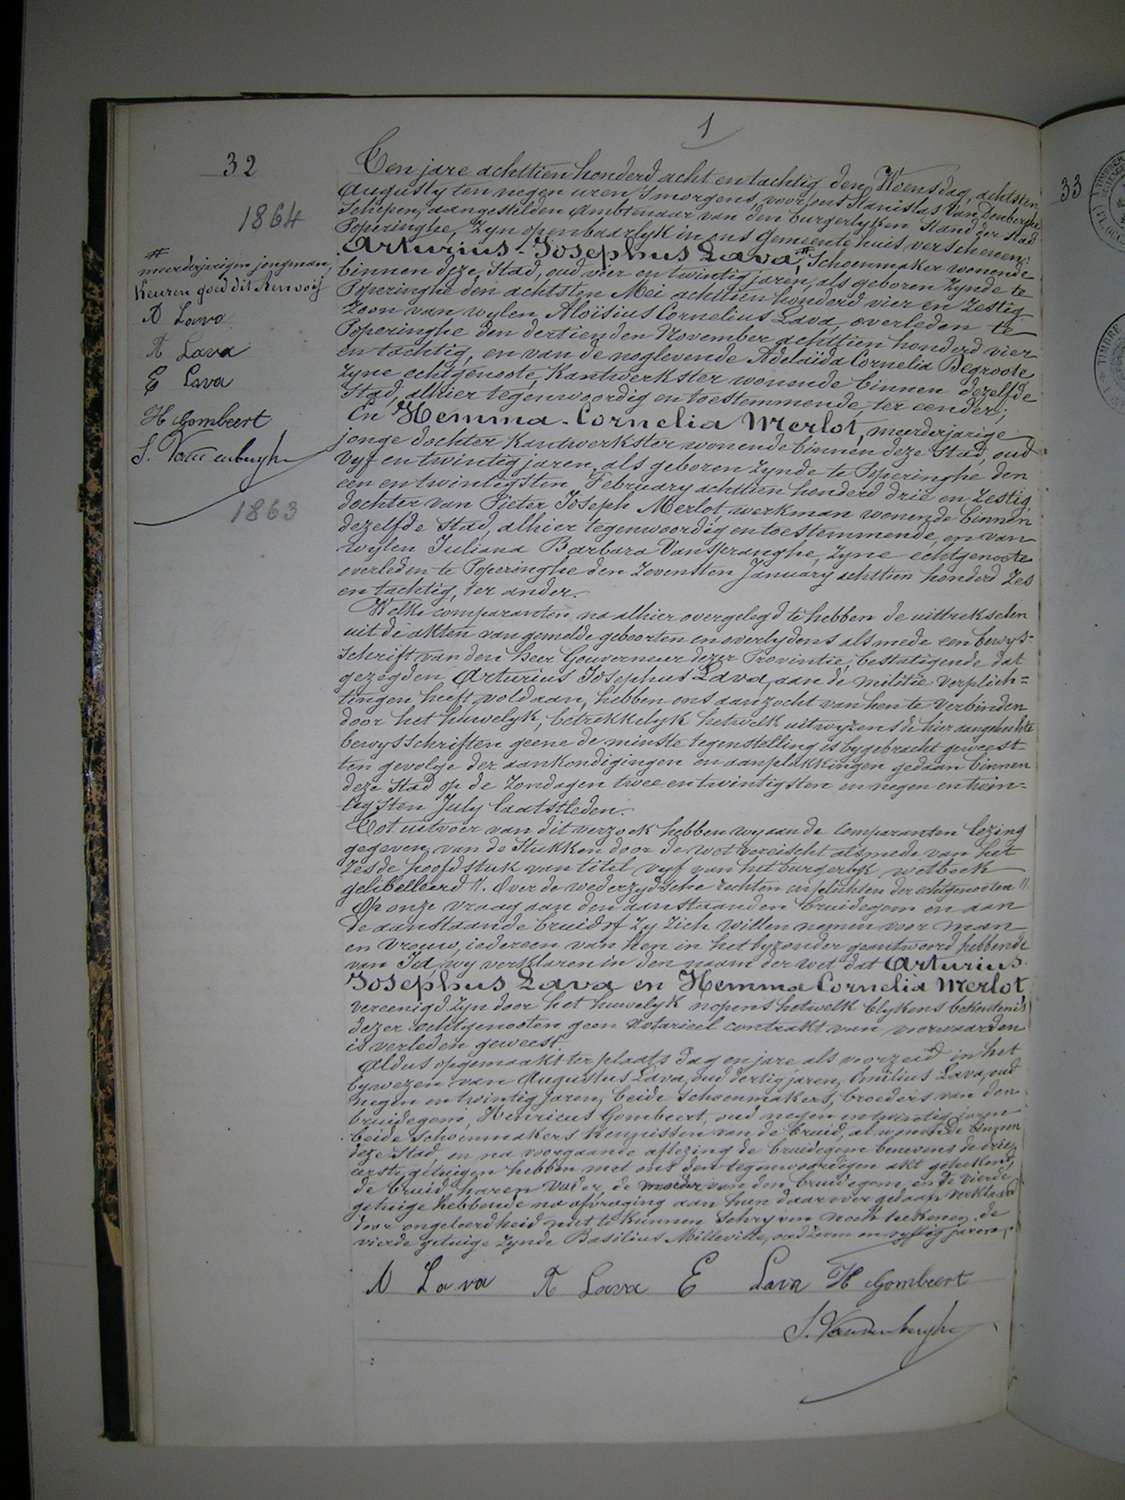 1
32
Ten jare achttien honderd acht en tachtig den Woensdag, achtsten
Augusty ten negen uren 's morgens, voor ons Stanislas Van den berghe
Schepen, aangestelden Ambtenaar van den burgerlyken Stand der Stad
Poperinghe, Zyn openbaarlyk in ons Gemeentehuis verschenen:
Arturius-Josephus Lava,# Schoenmaker wonende
binnen deze Stad, oud vier en twintig jaren, als geboren Zynde te
Poperinghe den achtsten Mei achttien honderd vier en Zestig
Zoon van wylen Aloïsius Cornelius Lava, overleden te
Poperinghe den dertienden November achttien honderd vier
en tachtig, en van de noglevende Adelaïda Cornelia Degroote
Zyne echtgenoote, Kantwerkster wonende binnen dezelfde
Stad, alhier tegenwoordig en toestemmende, ter eender;
En Hemma-Cornelia Merlot, meerderjarige
jonge dochter Kantwerkster wonende binnen deze Stad, oud
vyf en twintig jaren, als geboren Zynde te Poperinghe den
een en twintigsten February achttien honderd drie en Zestig,
dochter van Pieter Joseph Merlot, werkman wonende binnen
dezelfde Stad, alhier tegenwoordig en toestemmende, en van
wylen Juliana Barbara Vanspranghe, Zyne echtgenoote
overleden te Poperinghe den Zevensten January achttien honderd Zes
en tachtig, ter ander.
Welke comparanten, na alhier overgelegd te hebben de uittrekselen
uit de akten van gemelde geboorten en overlydens alsmede een bewys=
schrift van den heer Gouverneur dezer Provintie, bestatigende dat
gezegden Arturius Josephus Lava, aan de militie verplich=
tingen heeft voldaan, hebben ons aanzocht van hen te Verbinden
door het huwelyk, betrekkelyk hetwelk uitwyzens de hier aangehechte
bewysschriften geene de minste tegenstelling is bygebracht geweest
ten gevolge der aankondigingen en aanplakkingen gedaan binnen
deze Stad op de Zondagen twee en twintigsten en negen en twin=
tigsten July laatstleden.
Tot uitvoer van dit verzoek hebben wy aan de Comparanten lezing
gegeven, van de Stukken door de wet vereischt alsmede van het
Zesde hoofdstuk van titel vyf van het burgerlyk wetboek
gelibelleerd ". Over de wederzydsche rechten en plichten der echtgenooten ".
Op onze vraag aan den aanstaanden bruidegom en aan
de aanstaande bruid of zy zich willen nemen voor man
en vrouw, iedereen van hen in het byzonder geantwoord hebbende
van Ja, wy verklaren in den naam der wet dat Arturius
Josephus Lava en Hemma Cornelia Merlot,
vereenigd Zyn door het huwelyk nopens hetwelk blykens bekentenis
dezer echtgenooten geen Notarieel contrakt van voorwaarden
is verleden geweest.
Aldus opgemaakt ter plaats dag en jare als voorzeid in het
bywezen van Augustus Lava, oud dertig jaren, Emilius Lava, oud
negen en twintig jaren, beide Schoenmakers, broeders van den
bruidegom, Henricus Gombeert, oud negen en twintig jaren
beide Schoenmakers Kennissen van de bruid, al wonende binnen
deze Stad, en na voorgaande aflezing de bruidegom benevens de drie
eerste getuigen hebben met ons den tegenwoordigen akt geteekend,
de bruid haren Vader, de moeder van den bruidegom, en de vierde
getuige hebbende na afvraging aan hun daarover gedaan verklaard
door ongeleerdheid niet te kunnen Schryven noch teekenen. de
vierde getuige Zynde Basilius Milleville, oud een en vyftig jaren,
A Lava A Lava E Lava H Gombeert
S. Vandenberghe
1864
# meerderjarigen jongman,
Keuren goed dit Renvooi
A Lava
A Lava
E Lava
H Gombeert
S. Vandenberghe
1863
33